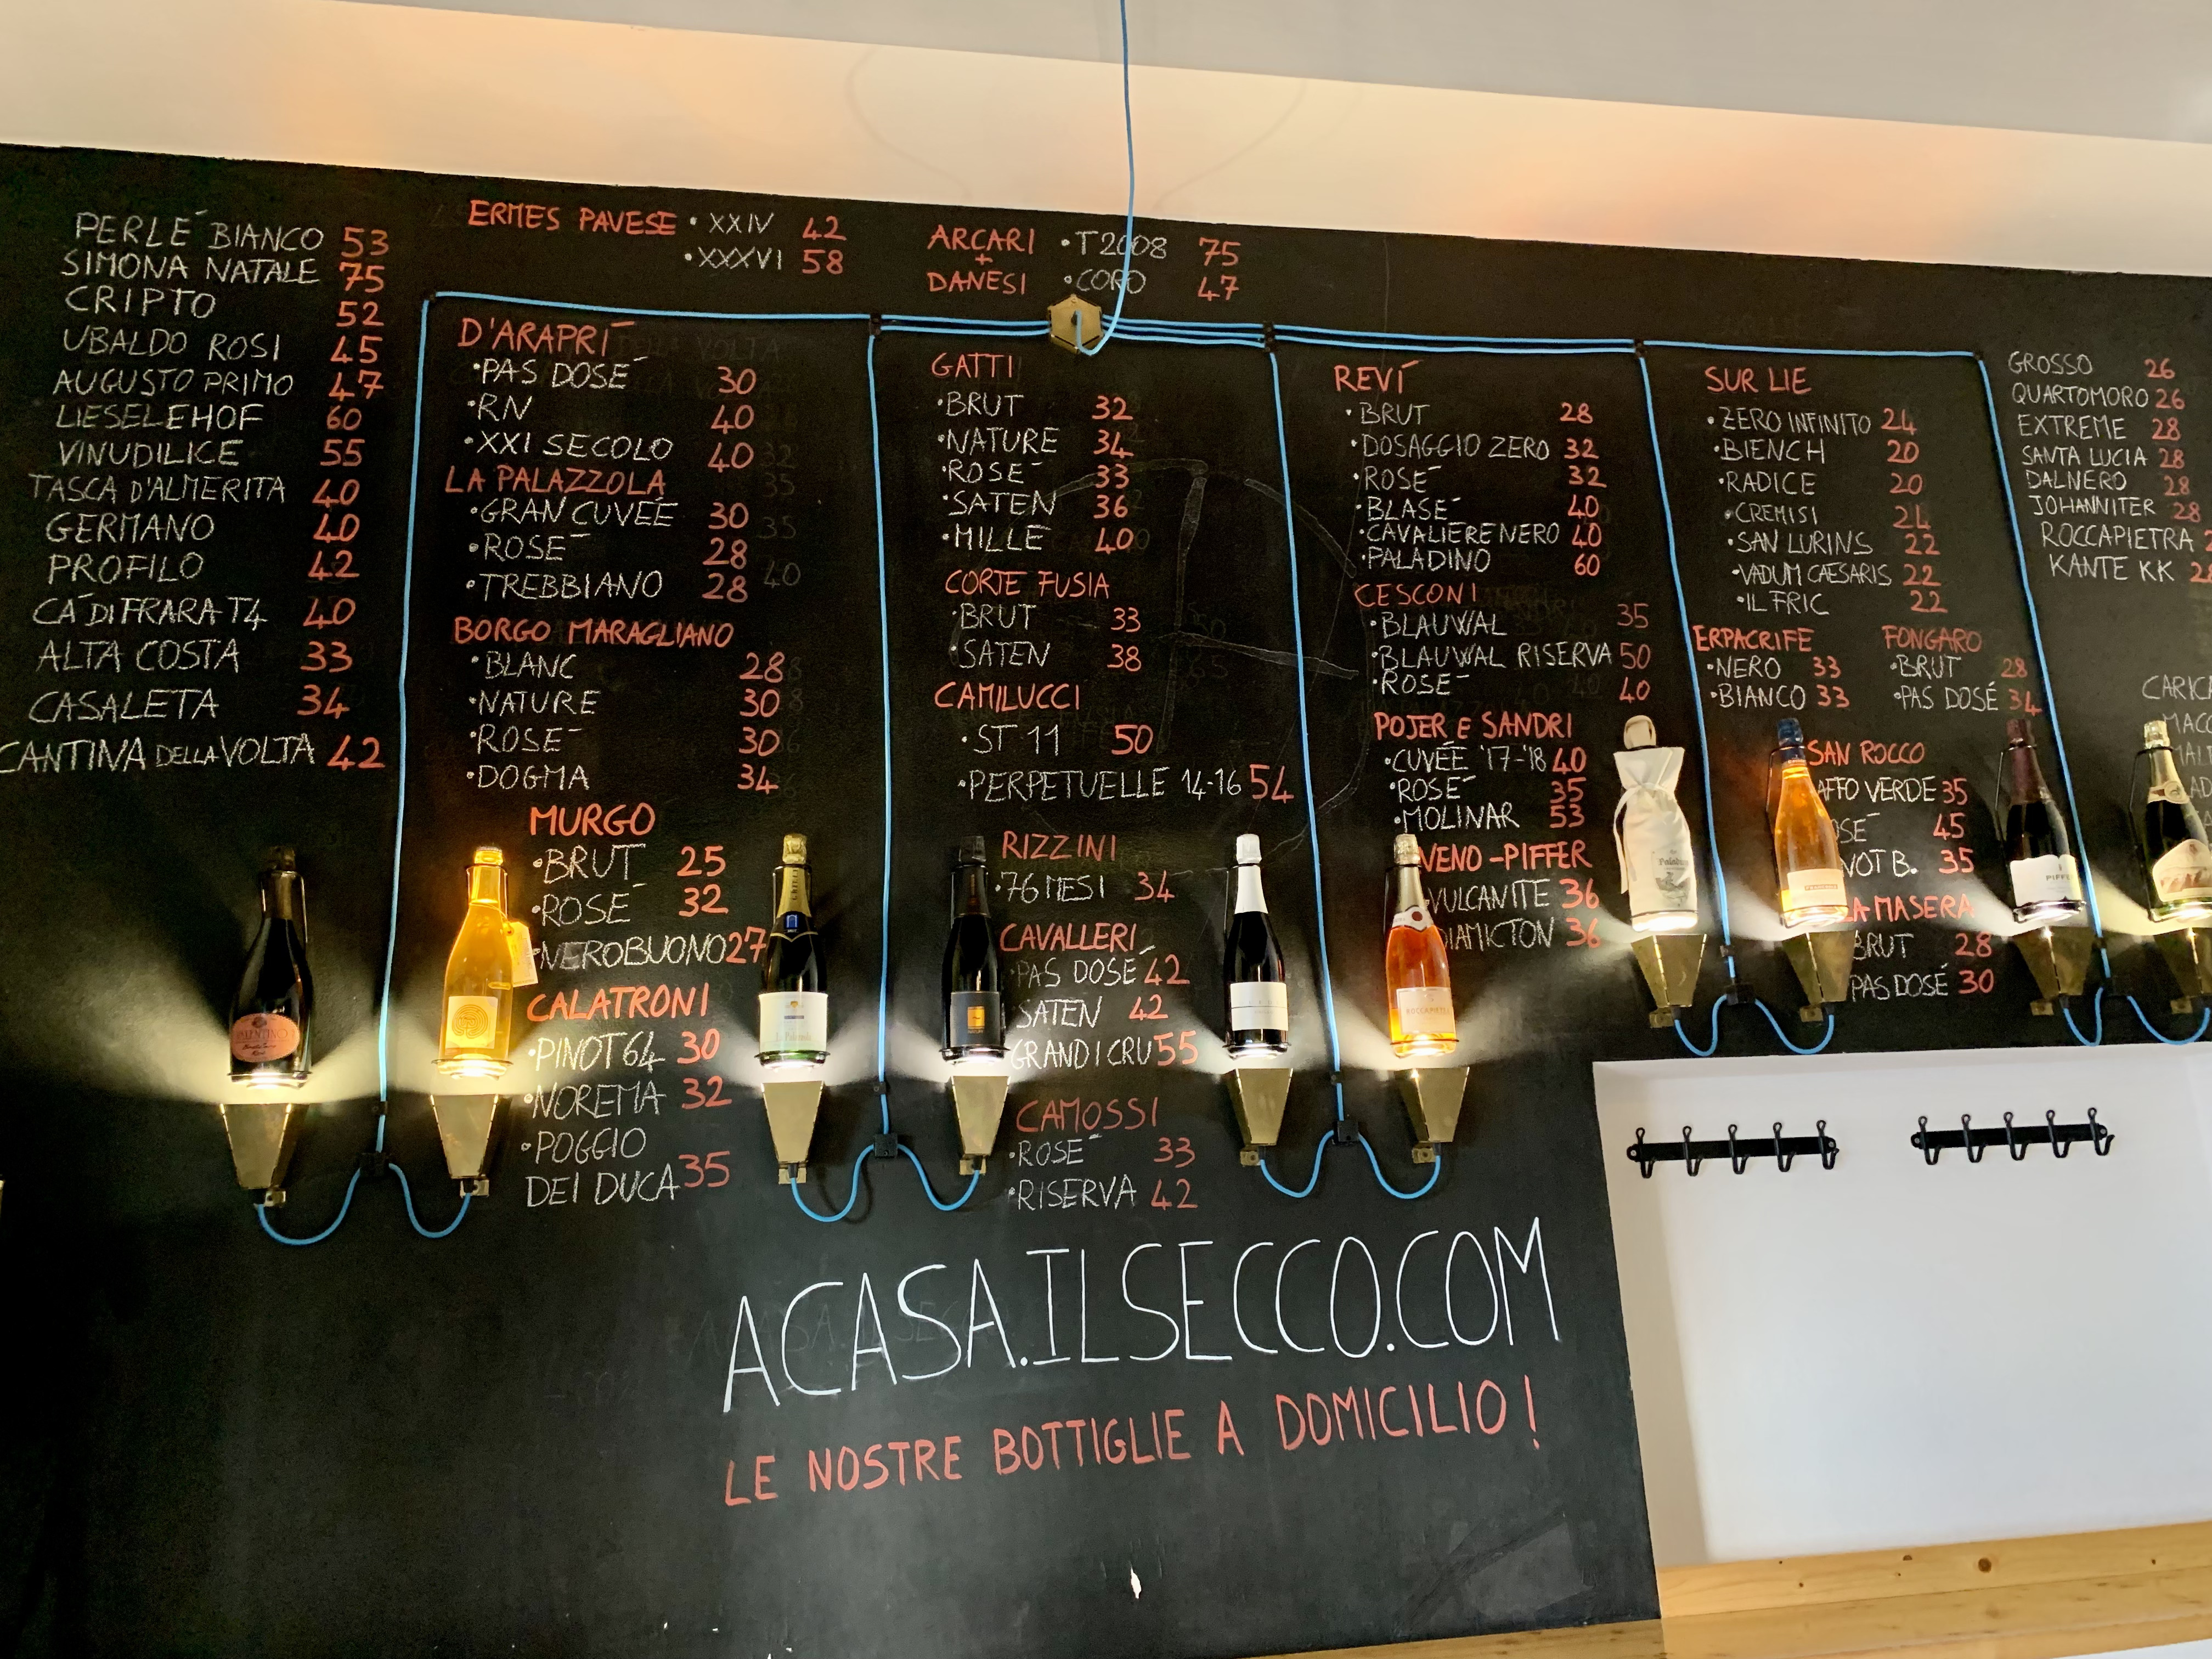 PERLÉ BIANCO 53
SIMONA NATALE 75
CRIPTO 52
UBALDO ROSI 45
AUGUSTO PRIMO 47
LIESELEHOF 60
VINUDILICE 55
TASCA D'ALMERITA 40
GERMANO 40
PROFILO 42
CÁ DI FRARA T4 40
ALTA COSTA 33
CASALETA 34
CANTINA DELLA VOLTA 42
ERMES PAVESE •XXIV 42
•XXXVI 58
ARCARI + DANESI
•T2008 75
•CORO 47
D'ARAPRÍ
•PAS DOSÉ 30
•RN 40
•XXI SECOLO 40
LA PALAZZOLA
•GRAN CUVÉE 30
•ROSÉ 28
•TREBBIANO 28
BORGO MARAGLIANO
•BLANC 28
•NATURE 30
•ROSÉ 30
•DOGMA 34
MURGO
•BRUT 25
•ROSÉ 32
•NEROBUONO 27
CALATRONI
•PINOT 64 30
•NOREMA 32
•POGGIO
DEI DUCA 35
GATTI
•BRUT 32
•NATURE 34
•ROSÉ 33
•SATEN 36
•MILLÉ 40
CORTE FUSIA
•BRUT 33
•SATEN 38
CAMILUCCI
•ST 11 50
•PERPETUELLE 14-16 54
RIZZINI
•76 MESI 34
CAVALLERI
•PAS DOSÉ 42
SATEN 42
GRANDI CRU 55
CAMOSSI
•ROSÉ 33
•RISERVA 42
REVÍ
•BRUT 28
•DOSAGGIO ZERO 32
•ROSÉ 32
•BLASÉ 40
•CAVALIERE NERO 40
•PALADINO 60
CESCONI
•BLAUWAL 35
•BLAUWAL RISERVA 50
•ROSÉ 40
POJER E SANDRI
•CUVÉE '17-'18 40
•ROSÉ 35
•MOLINAR 53
VENO-PIFFER
VULCANITE 36
DIAMICTON 36
SUR LIE
•ZERO INFINITO 24
•BIENCH 20
•RADICE 20
•CREMISI 24
•SAN LURINS 22
•VADUM CAESARIS 22
•IL FRIC 22
ERPACRIFE
•NERO 33
•BIANCO 33
FONGARO
•BRUT 28
•PAS DOSÉ 34
SAN ROCCO
AFFO VERDE 35
OSÉ 45
NOT B. 35
LA MASERA
BRUT 28
PAS DOSÉ 30
GROSSO 26
QUARTOMORO 26
EXTREME 28
SANTA LUCIA 28
DALNERO 28
JOHANNITER 28
ROCCAPIETRA
KANTE KK 28
ACASA.ILSECCO.COM
LE NOSTRE BOTTIGLIE A DOMICILIO!